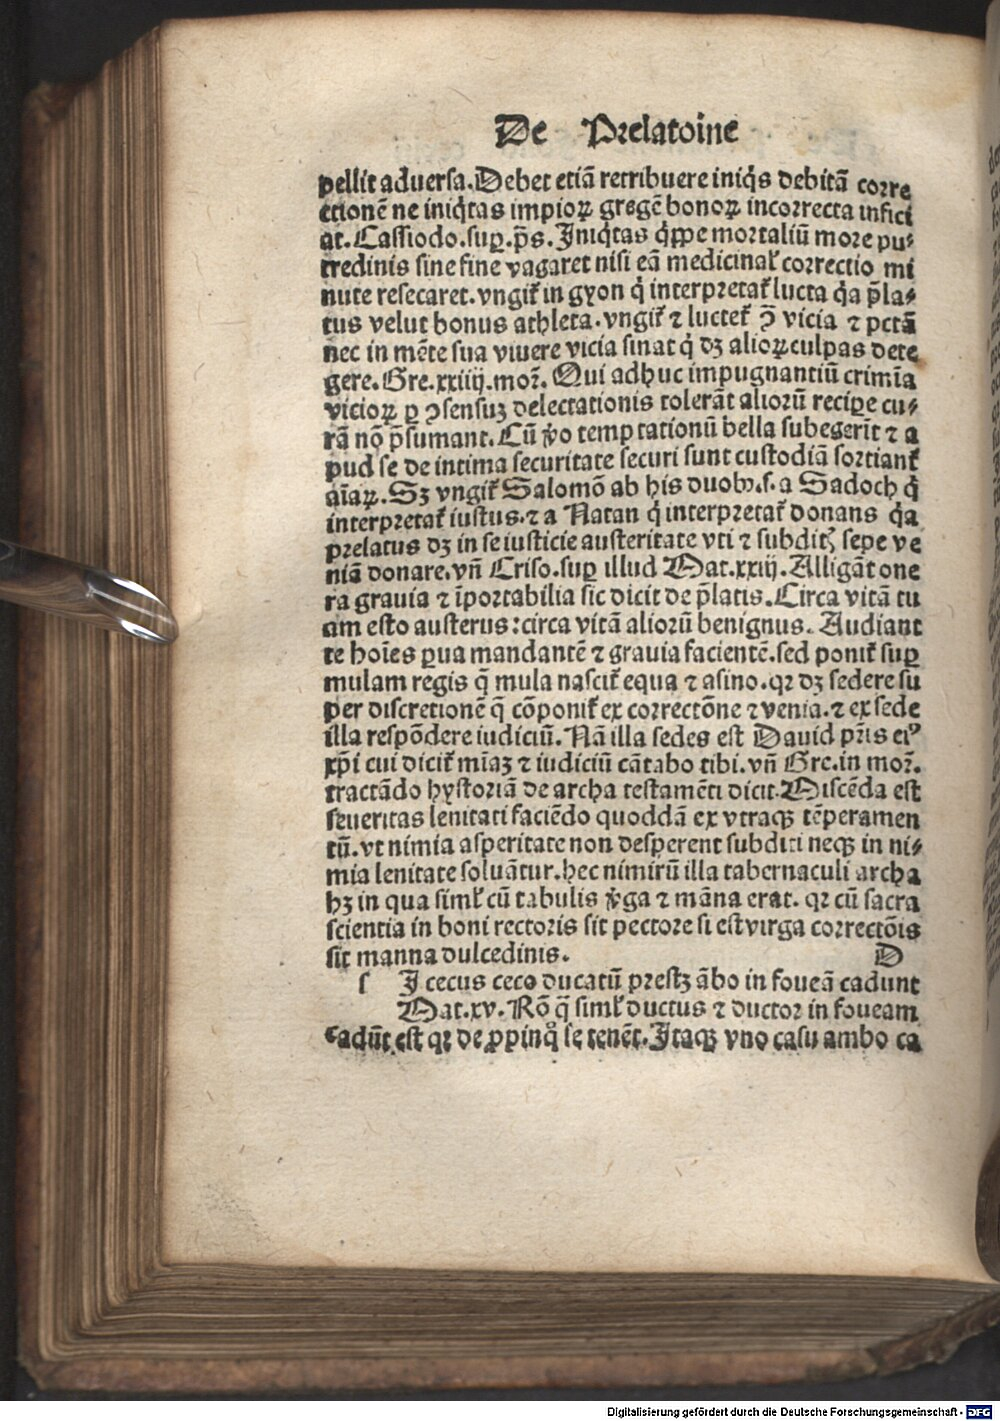 De Prelatoine
pellit aduersa. Debet etiā retribuere iniq̇s debitā corre
ctionē ne iniq̇tas impioꝝ gregē bonoꝝ incorrecta infici
at. Cassiodo. suꝑ. p̄s. Iniq̇tas q̇ꝑpe mortaliū more pu⸗
tredinis sine fine vagaret nisi eā medicinal̛ correctio mi
nute resecaret. vngit̛ in gyon q̇ interpretat̛ lucta q̇a p̄la⸗
tus velut bonus athleta. vngit̛ ⁊ luctet̛ ꝯ̄ vicia ⁊ pctā
nec in mēte sua viuere vicia sinat q̇ dꝫ alioꝝ culpas dete
gere. Gre. xxiiij. mor̄. Qui adhuc impugnantiū crimīa
vicioꝝ ꝑ ꝯsensuꝫ delectationis tolerāt aliorū recipe cu⸗
rā nō p̄sumant. Cū v̊o temptationū bella subegerīt ⁊ a
pud se de intima securitate securi sunt custodiā sortiant̛
aīaꝝ. Sꝫ vngit̛ Salomō ab his duobꝰ. s. a Sadoch q̇
interpretat̛ iustus. ⁊ a Natan q̇ interpretat̛ donans q̇a
prelatus dꝫ in se iusticie austeritate vti ⁊ subditꝭ sepe ve
niā donare. vn̄ Criso. suꝑ illud Mat. xxiij. Alligāt one
ra grauia ⁊ īportabilia sic dicit de p̄latis. Circa vitā tu
am esto austerus: circa vitā aliorū benignus. Audiant
te hoīes ꝑua mandantē ⁊ grauia facientē. sed ponit̛ suꝑ
mulam regis q̄ mula nascit̛ equa ⁊ asino. qꝛ dꝫ sedere su
per discretionē q̄ cōponit̛ ex correctōne ⁊ venia. ⁊ ex sede
illa respōdere iudiciū. Nā illa sedes est Dauid pr̄is eiꝰ
xp̄i cui dicit̛ mīaꝫ ⁊ iudiciū cātabo tibi. vn̄ Gre. in mor̄.
tractādo hystoriā de archa testamēti dicit. Miscēda est
seueritas lenitati faciēdo quoddā ex vtraqꝫ tēperamen
tū. vt nimia asperitate non desperent subditi neqꝫ in ni⸗
mia lenitate soluātur. hec nimirū illa tabernaculi archa
hꝫ in qua siml̛ cū tabulis v̊ga ⁊ māna erat. qꝛ cū sacra
scientia in boni rectoris sit pectore si est virga correctōis
sit manna dulcedinis. D
s I cecus ceco ducatū prestꝫ ābo in foueā cadunt
Mat. xv. Rō q̄ siml̛ ductus ⁊ ductor in foueam
cadūt est qꝛ de ꝓpinq̊ se tenēt. Itaqꝫ vno casu ambo ca
Digitalisierung gefördert durch die Deutsche Forschungsgemeinschaft - DFG